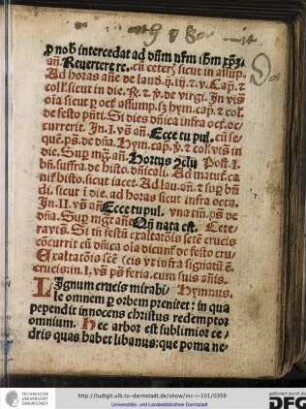 p nob̄ intercedat ad dn̄m nr̄m ihm xp̄m.
an̄. Revertere re. cū ceteris sicut in assūp.
Ad horas an̄e de laud. ij. iij. & v. Cap̄. &
coll. sicut in die. R. & v̄. de virgi. In vīs
oīa sicut p̄ oct̄ assump. hym. cap̄. & col.
de festo pn̄ti. Si dies dn̄ica infra oct. oc-
currerit. In. I. vīs an̄. Ecce tu pul. cū se-
quē. ps̄. de dn̄a. Hym. cap̄. v̄. & col. vīs in
die. Sup mḡ. an̄. Hortus 2clu Post. I.
bn̄. infra de histo. dn̄icali. Ad matut. ca-
nit̄ histo. sicut iacet. Ad lau. an̄. & sup bn̄
di. sicut i die. ad horas sicut infra octa.
In. II. vīs an̄ Ecce tu pul. vna cū. ps̄. de
dn̄a. Sup mḡt an̄e Qn̄ nata est. Cete-
ra vīs. Si in festū exaltatōis scte crucis
cōcurrit cū dn̄ica oīa dicunt̄ de festo cru.
Exaltatōis scē ✠cis vt infra signatū ē.
crucis. in. I. vīs ps̄ feria. cum suis anīs.
LIgnum crucis mirabi/ Hymnus.
le omnem p orbem prenitet: in qua
pependit innocens christus redemptor
omnium. Hec arbor est sublimior ce/
dris quas habet libanus: que poma ne/
http://tudigit.ulb.tu-darmstadt.de/show/inc-i-101/0359
Universitäts- und Landesbibliothek Darmstadt
gefördert von
DFG